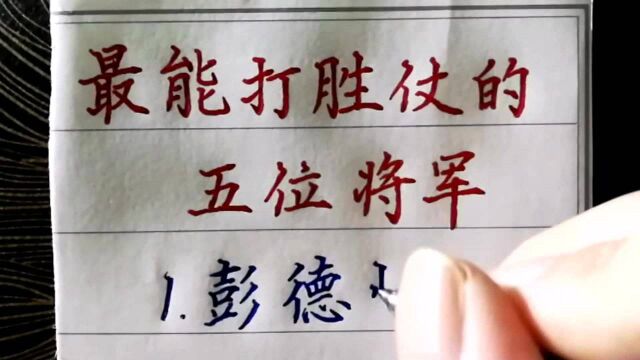 最能打胜仗的
五位将军
1.彭德